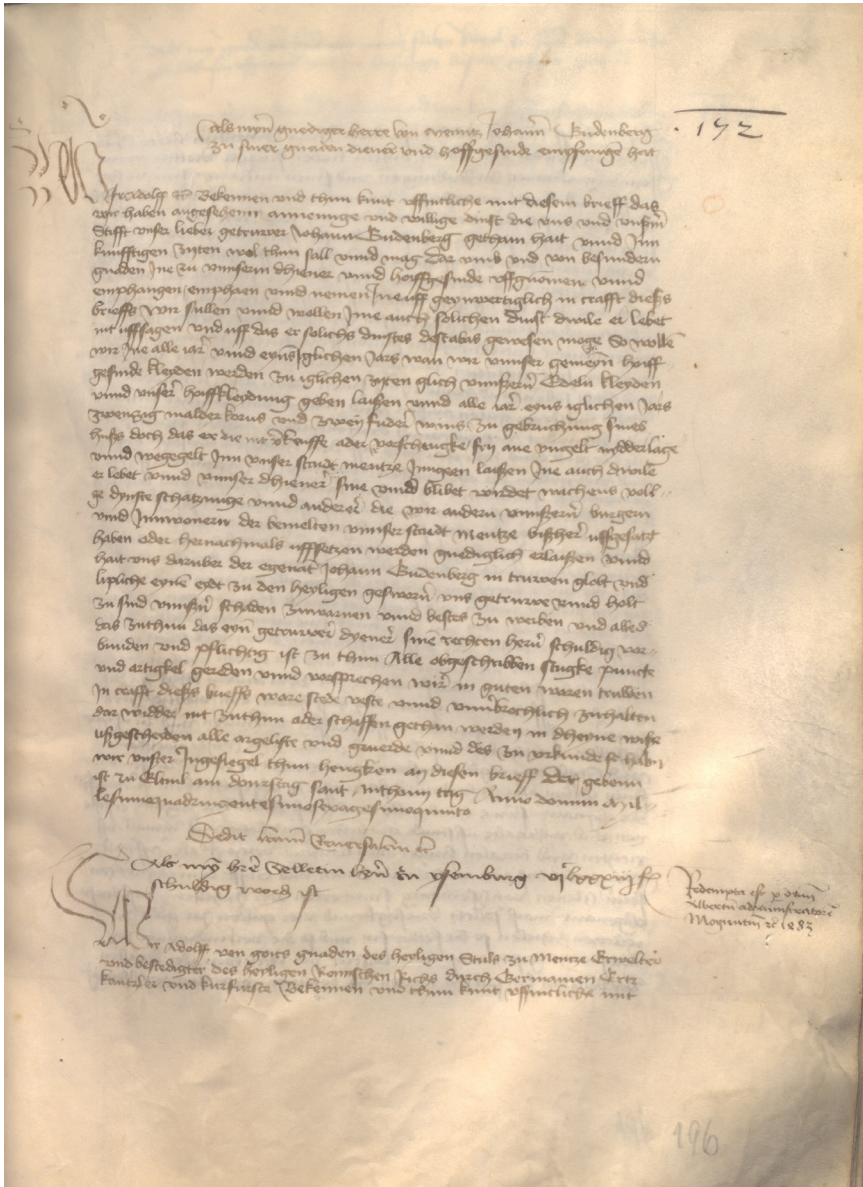 Als myn gnediger herre von Mentz Johann Budenberg
zu siner gnaden diener und hoffgesinde empfangen hait
172
Wir Adolff etc Bekennen und thun kunt uffintliche mit diesem brieff das
wir haben angesehenn annemige und willige dinst die uns und unserm
Stifft unser lieber getruwer Johann Budenberg gethan hait unnd Inn
kunfftigen zyten wol thun sall unnd mag Dar umb und von besundern
gnaden Ine zu unnserm dhiener unnd hoiffgesinde uffgnomen unnd
emphangen emphaen unnd nemen Ine uff geynwertiglich in crafft dießs
brieffs wir sullen unnd wollen Ime auch solichen dinst dwile er lebet
nit uffsagen und uff das er solichs dinstes desbas gewesen moge So wollen
wir Ime alle iar unnd eyns iglichen Jars wan wir unnser gemeyn hoiff
gesinde kleyden werden zu iglichen zyten glich unnßern Edeln kleyden
unnd unser hoiffkleydung geben laißen unnd alle iar eyns iglichen Jars
zwenzig malder korns und zwey fuder wins zu gebruchung sines
hußs doch das er die nit verkeuffe ader verschencke fry ane ungelt nydderlage
unnd wegegelt Inn unser stadt mentze Inngeen laißen Ine auch dwile
er lebet unnd unnser dhiener sine unnd blibet wirdet wachens voll
ge dynste schatzunge unnd anderer die wir andern unnßern burgern
unnd Innwonern der bemelten unnser stadt Mentze bißher uffgesatzt
haben oder hernachmals uffsetzen werden gnediglich erlaißen unnd
hait uns daruber der egenant Johann Budenberg in truwen globt und
lipliche eynen eydt zu den heyligen gesworn uns getruwe unnd holt
zu sind unnserm schaden zuwarnen unnd bestes zu werben und alles
das zuthun das eyn getruwer dyener sine rechten hern schuldig ver-
bunden und pflichtig ist zu thun Alle obgeschribben stugke puncte
und artigkel gereden unnd versprechen wir in guten waren truwen
In crafft dießs brieffs ware stede veste unnd unverbrochlich zuhalten
dar widder nit zuthun ader schaffen gethan werden in dheyne wise
ußgescheiden alle argeliste und geuerde unnd des zu urkunde so habn
wir unser Ingesiegel thun hengken an diesen brieff Der gebenn
ist zu Eltuil am donrstag sant Anthonij tag Anno domini Mil-
lesimoquadringentesimosexagesimoquinto
Dedit litteram Reuersalem etc
Als myn herre zu Isenburg vi lxxxiiij fl
schuldig worden ist
Redempta est per dominum
Albertum administratorem
Moguntinum etc 1483
Wir Adolff von gots gnaden des heyligen Stuls zu Mentze Erwelter
und bestedigter des heyligen Romischen Richs durch Germanien Ertz
kantzler und kurfurste Bekennen und thun kunt uffintliche mit
196